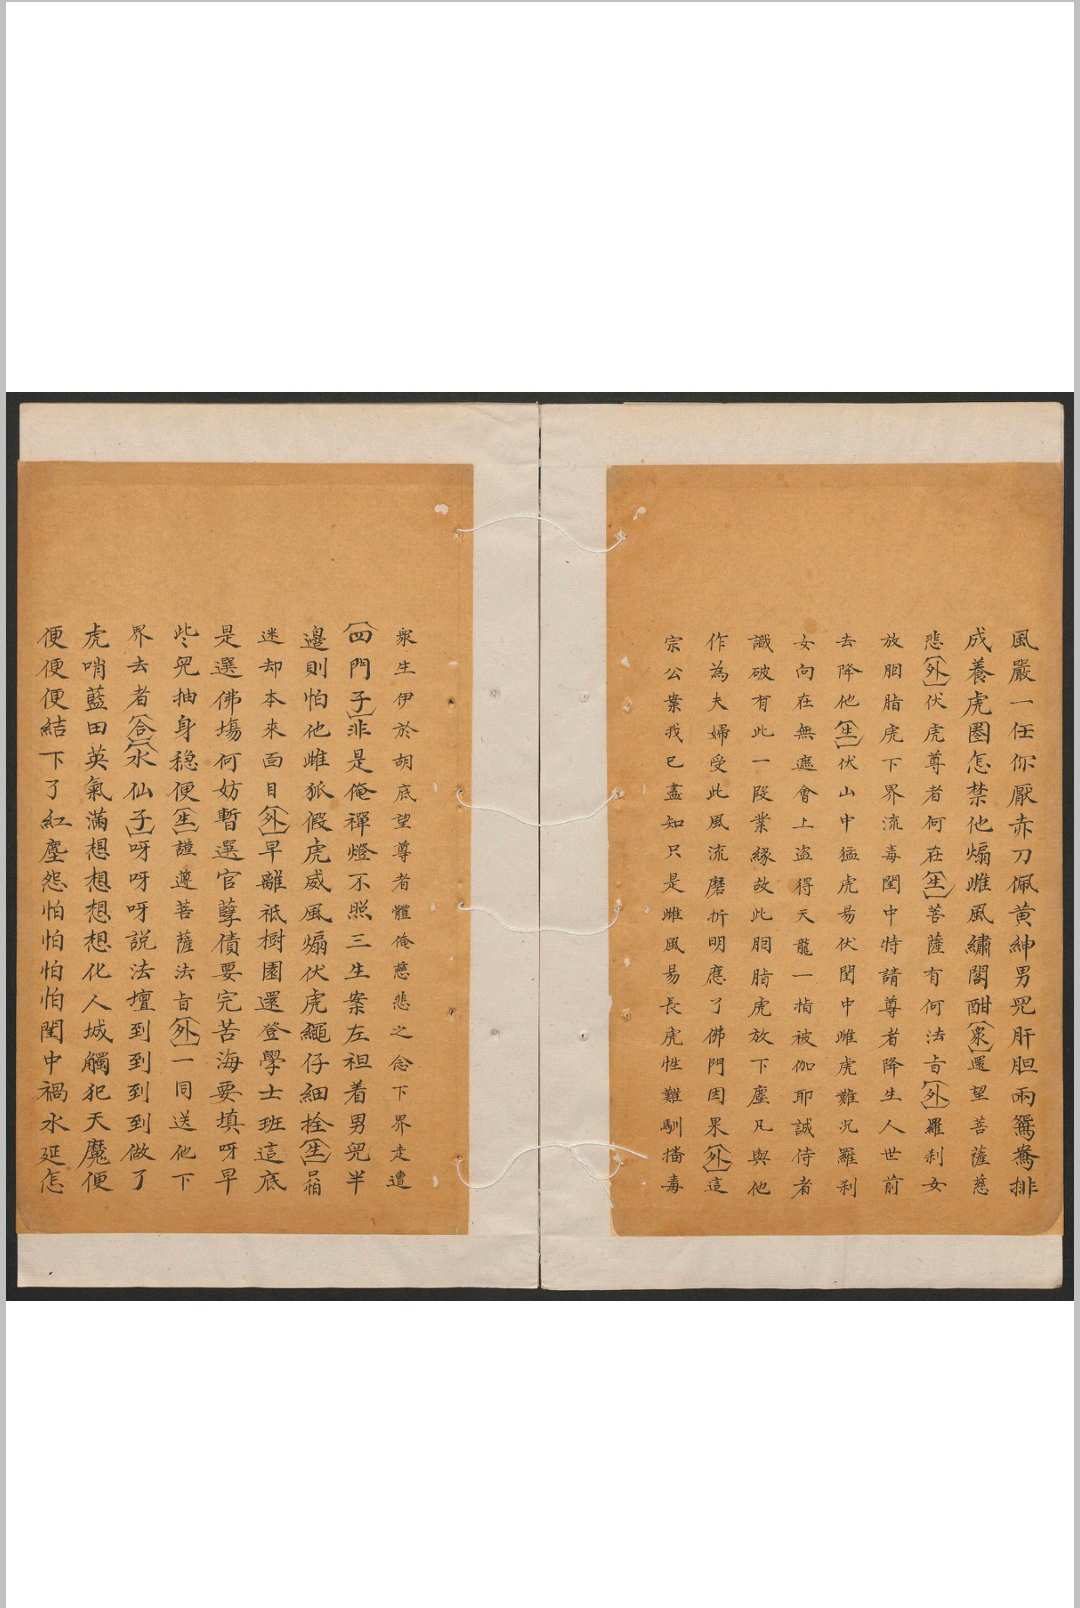 風嚴一任你厭赤刀佩黃紳男児肝胆兩鴛鴦排
成養虎圈怎禁他煽雌風繡閣酣衆還望菩薩慈
悲外伏虎尊者何在生菩薩有何法旨外羅刹女
放胭脂虎下界流毒閨中特請尊者降生人世前
去降他生伏山中猛虎易伏閨中雌虎難况羅刹
女向在無遮會上盗得天龍一指被伽耶誠侍者
識破有此一段業緣故此胭脂虎放下塵凡與他
作為夫婦受此風流磨折明應了佛門因果外這
宗公案我已盡知只是雌風易長虎性難馴搐毒
衆生伊於胡底望尊者體俺慈悲之念下界走遭
四門子非是俺禪燈不照三生案左袒着男兒半
邊則怕他雌狐假虎威風煽伏虎繩仔細拴生
迷却本來面目外早離祇樹園還登學士班這底
是選佛塲何妨暫選官孽債要完苦海要填呀早
些兒抽身穏便生謹遵菩薩法旨外一同送他下
界去者合水仙子呀呀呀説法壇到到到到做了
虎哨藍田英氣滿想想想想化人城觸犯天魔便
便便便結下了紅塵怨怕怕怕怕閨中禍水延怎